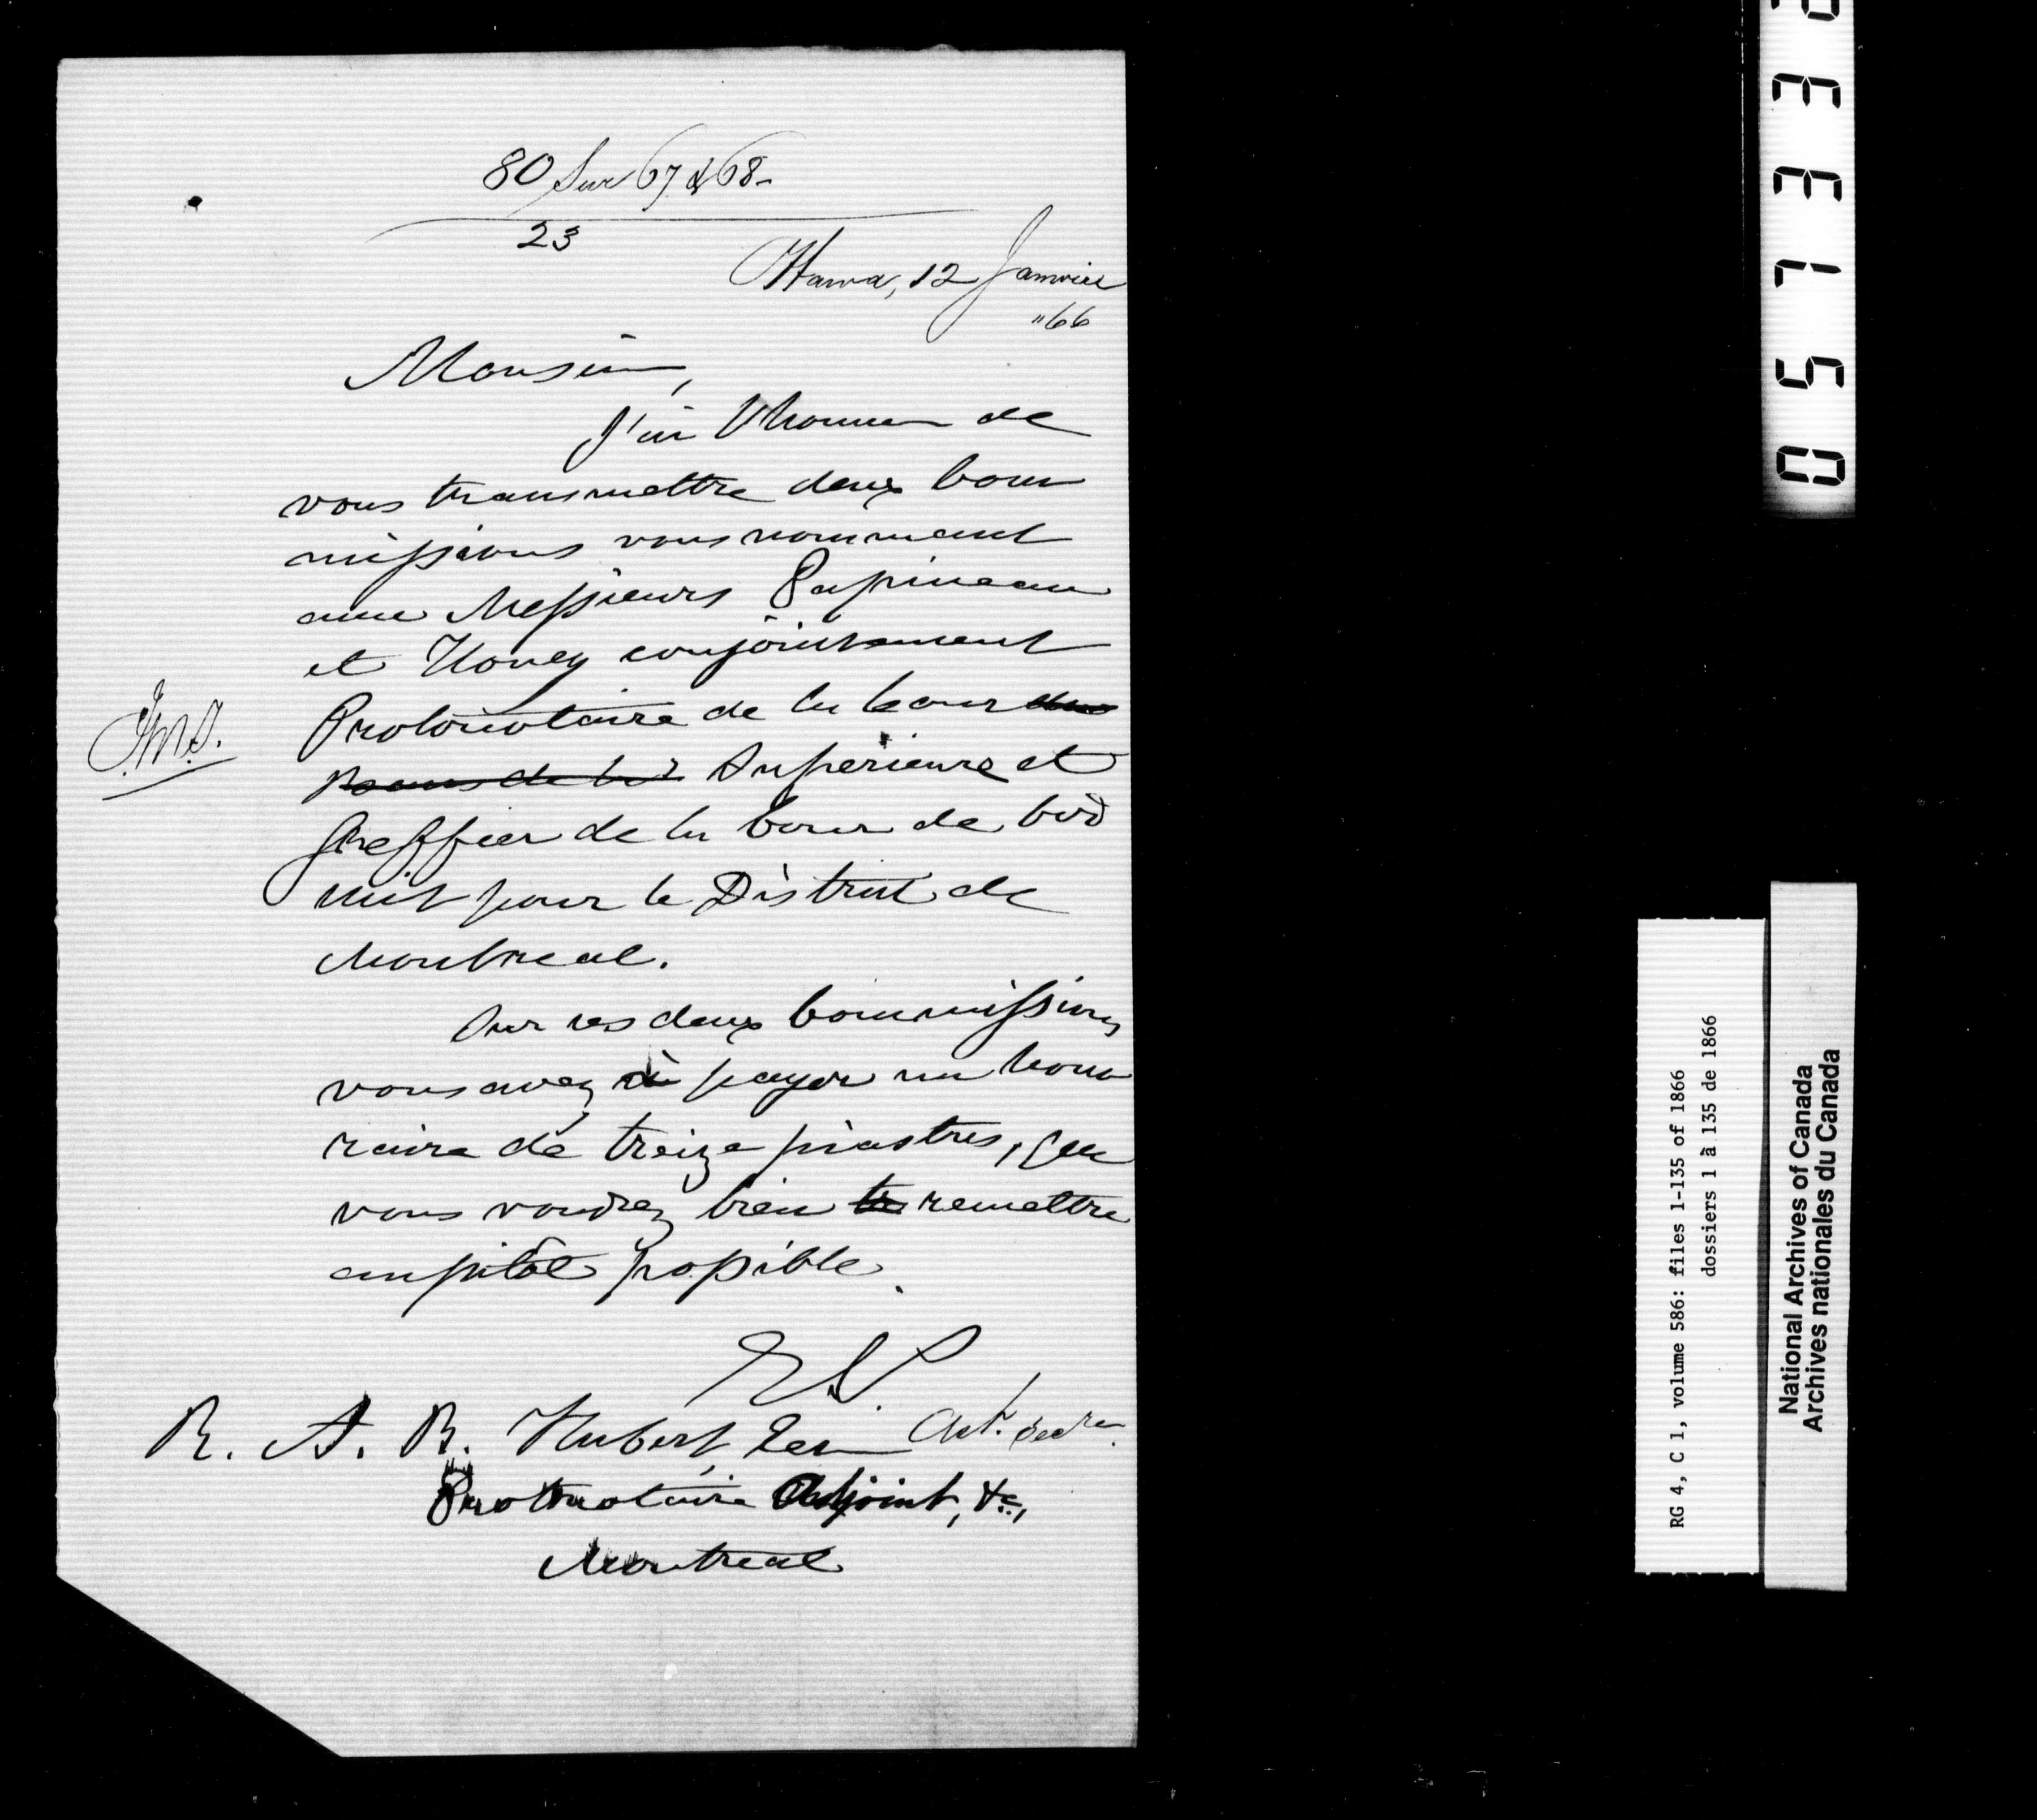 80 Sur 67 & 68-
23
Ottawa, 12 Janvier
"66
Monsieur,
J'ai l'honneur de
vous transmettre deux Com
missions vous nommant
avec Messieurs Papineau
et Honey conjointement
Protonotaire de la Cour
Supérieure et
J.M.J.
Greffier de la Cour de Cir
cuit pour le District de
Montreal.
Sur ces deux Commissions
vous avez à payer un hono
raire de treize piastres, que
vous voudrez bien remettre
au plutôt possible.
R. A. R. Hubert, Ecr
Ast. Secre.
Protonotaire Adjoint, &c.,
Montreal
RG 4, C 1, volume 586: files 1-135 of 1866
dossiers 1 à 135 de 1866
National Archives of Canada
Archives nationales du Canada